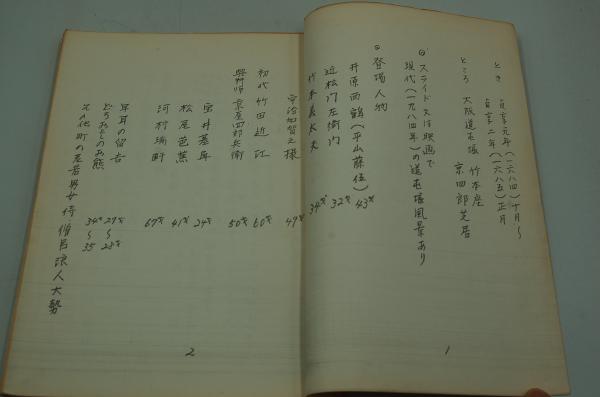 とき 貞享元年(一六八四)十月〜
貞享二年(一六八五)正月
ところ 大阪道頓堀 竹本座
京四郎芝居
◎スライド又は映画で
現代(一九八四年)の道頓堀風景あり
◎登場人物
井原西鶴(平山藤伍) 43才
近松門左衛門 32才
竹本義太夫 34才
宇治加賀之掾 49才
初代竹田近江 60才
興行師 京屋四郎兵衛 50才
宝井其角 24才
松尾芭蕉 41才
河村瑞軒 67才
早耳の留吉 27才〜28才
どろみずのお熊 34才〜35
その他町の老若男女侍僧侶浪人大勢
1
2